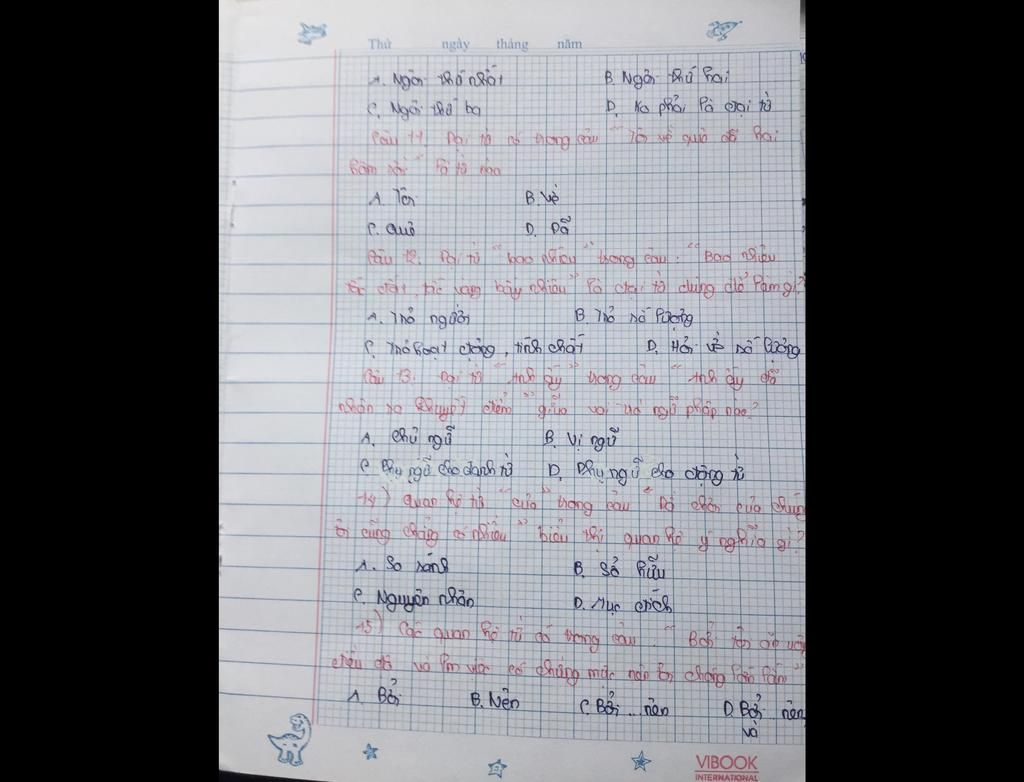 Thứ ngày tháng năm
A. Ngôi thứ nhất B. Ngôi thứ hai
C. Ngôi thứ ba D. Ko phải là đại từ
Câu 11. Đại từ có trong câu "Tôi về quê đã hai
năm rồi" là từ nào
A. Tôi B. Về
C. Quê D. Đã
Câu 12. Đại từ "bao nhiêu" trong câu: "Bao nhiêu
tấc đất, tấc vàng bấy nhiêu" là đại từ dùng để làm gì?
A. Trỏ người B. Trỏ số lượng
C. Trỏ hoạt động, tính chất D. Hỏi về số lượng
Câu 13. Đại từ "anh ấy" trong câu "Anh ấy đã
nhận ra khuyết điểm" giữ vai trò ngữ pháp nào?
A. Chủ ngữ B. Vị ngữ
C. Phụ ngữ cho danh từ D. Phụ ngữ cho động từ
14) Quan hệ từ "của" trong câu "Đồ chơi của chúng
tôi cũng chẳng có nhiều" biểu thị quan hệ ý nghĩa gì?
A. So sánh B. Sở hữu
C. Nguyên nhân D. Mục đích
15) Các quan hệ từ có trong câu: "Bởi tôi ăn uống
điều độ và làm việc có chừng mực nên tôi chóng lớn lắm"
A. Bởi B. Nên C. Bởi ... nên D. Bởi ... nên
và
VIBOOK
INTERNATIONAL